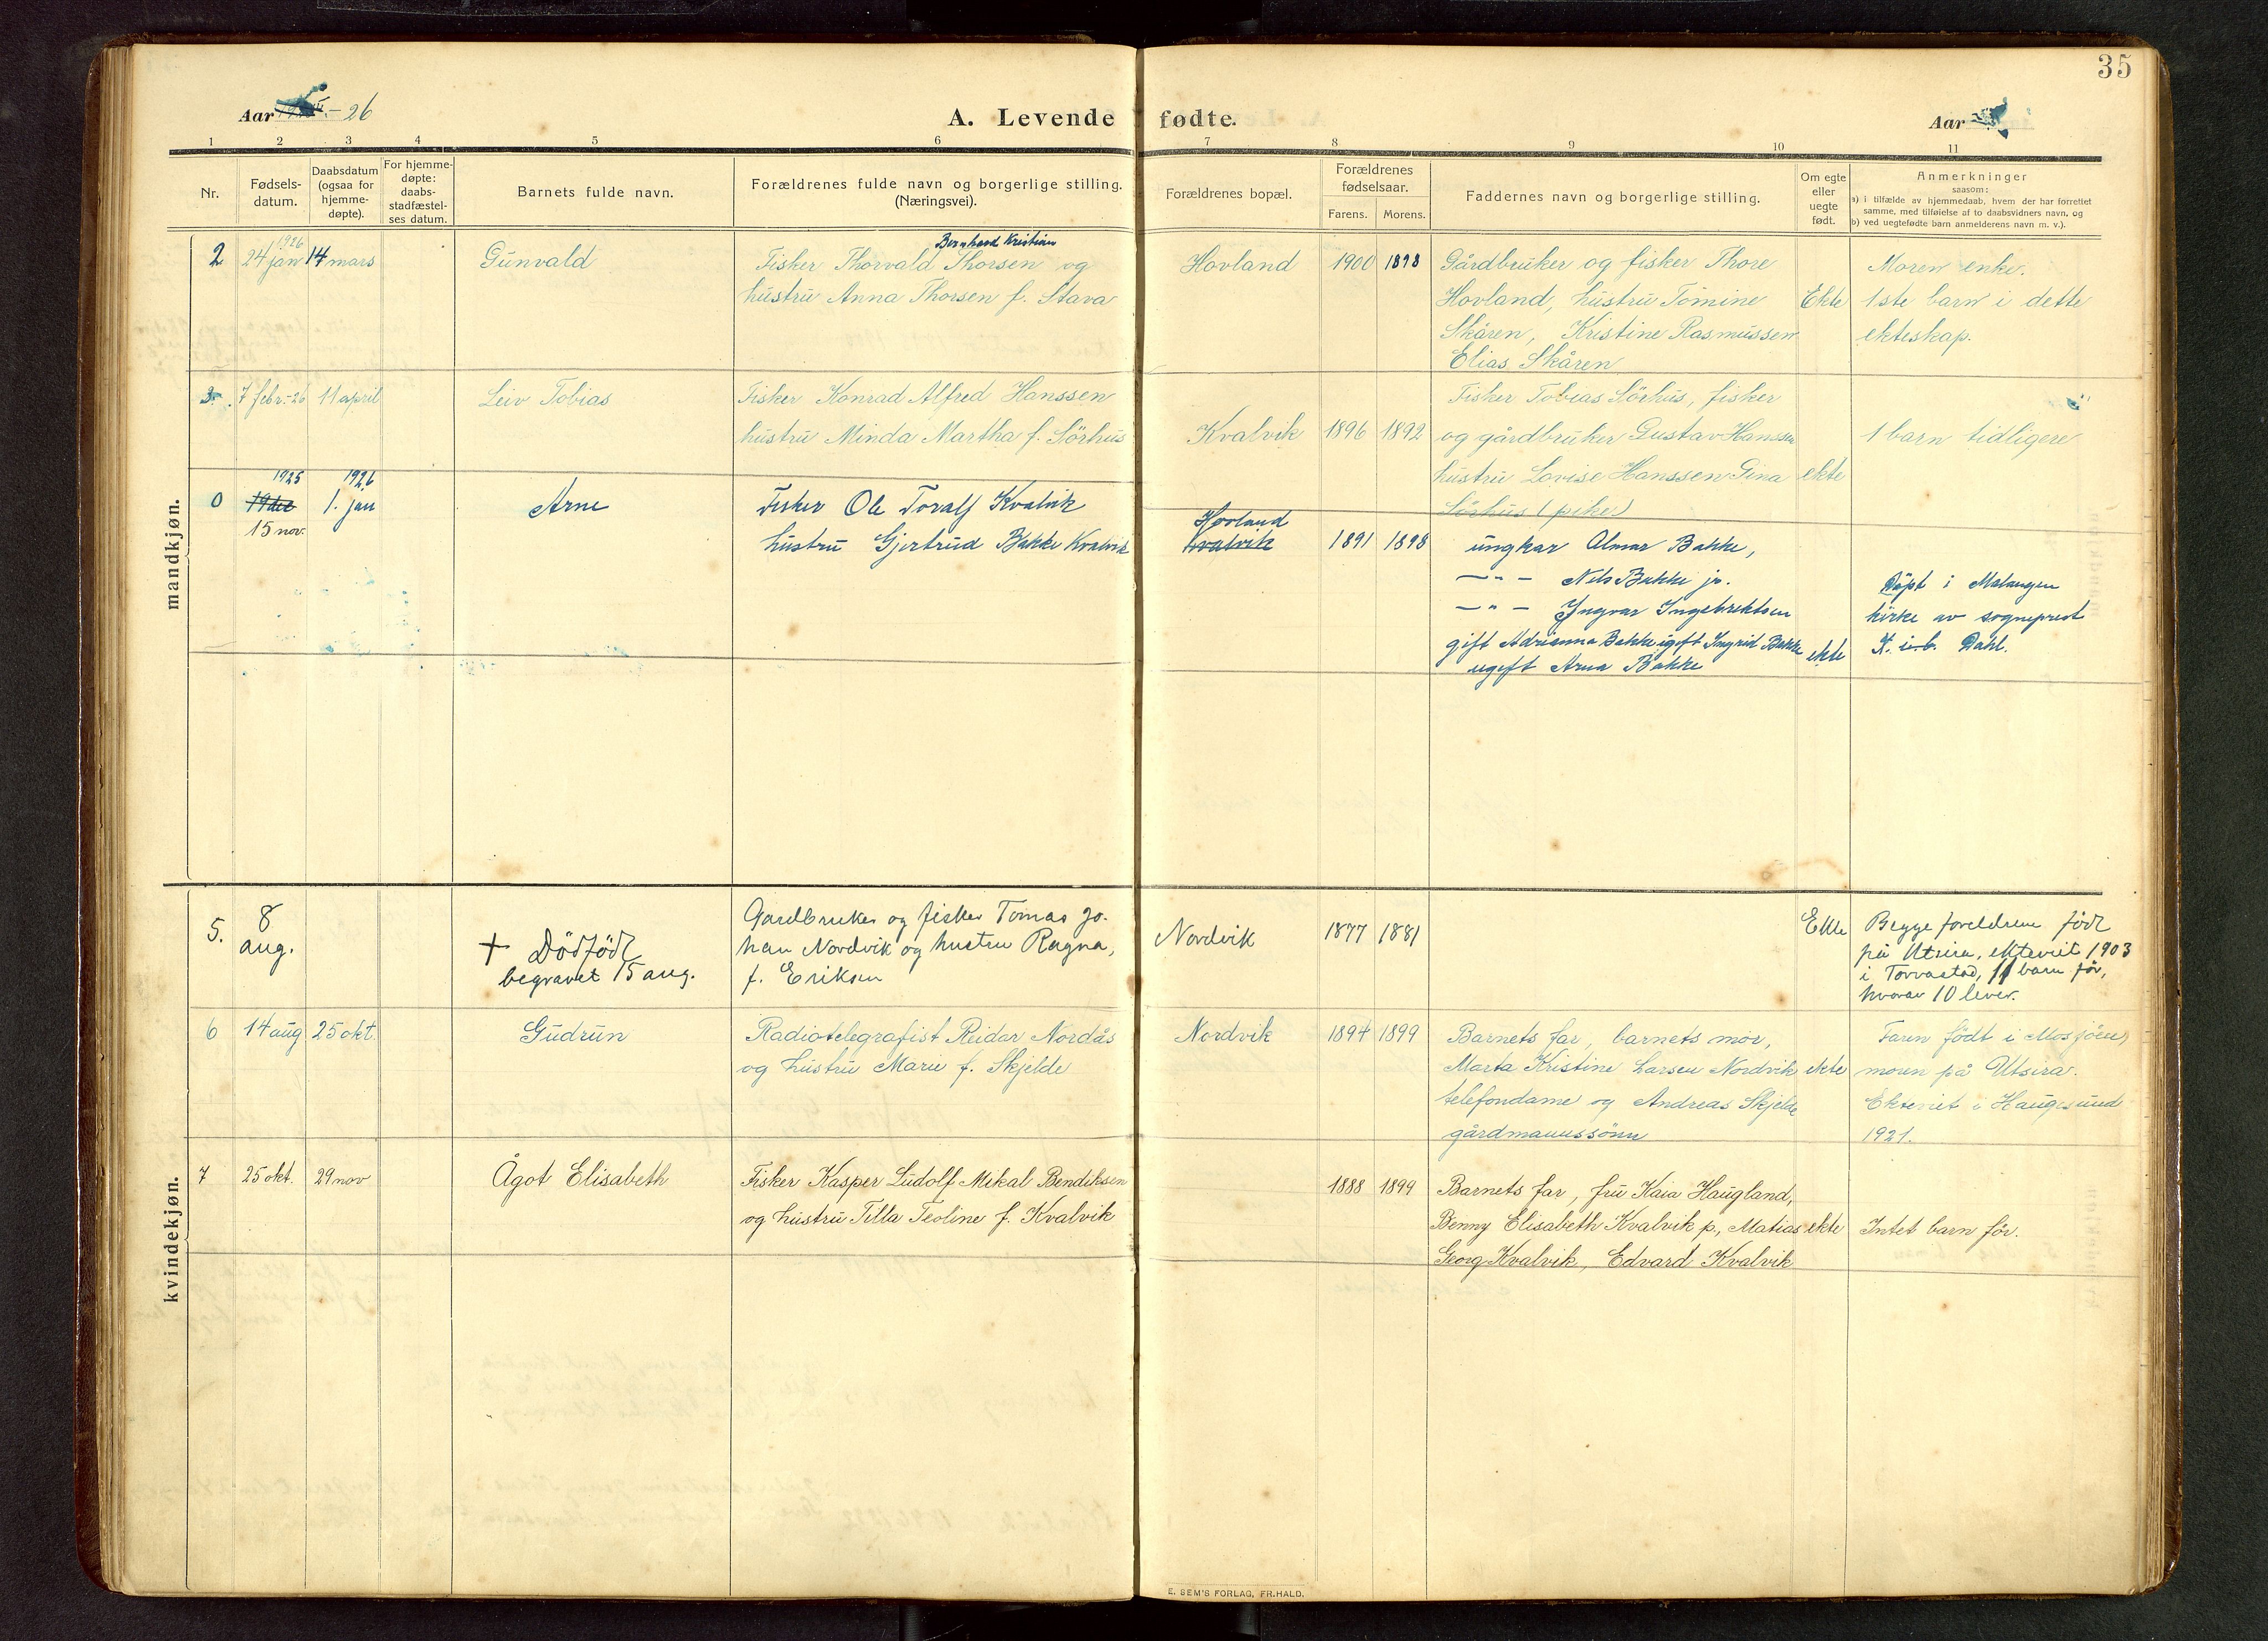 35
Aar - 26
A. Levende fødte.
Aar
1 2 3 4 5 6 7 8 9 10 11
Nr.
Fødsels-
datum.
Daabsdatum
(ogsaa for
hjemme-
døpte).
For hjemme-
døpte:
daabs-
stadfæstel-
ses datum.
Barnets fulde navn.
Forældrenes fulde navn og borgerlige stilling.
(Næringsvei).
Forældrenes bopæl.
Forældrenes
fødselsaar.
Farens. Morens.
Faddernes navn og borgerlige stilling.
Om egte
eller
uegte
født.
Anmerkninger
saasom:
a) i tilfælde av hjemmedaab, hvem der har forrettet
samme, med tilføielse af to daabsvidners navn, og
b) ved uegtefødte børn anmelderens navn m. v.).
mandkjøn.
2
1926
24 jan
14 mars
Gunvald
Bernhard Kristian
Fisker Thorvald Thorsen og
hustru Anna Thorsen f. Stava
Hovland
1900 1898
Gårdbruker og fisker Thore
Hovland, hustru Tomine
Skåren, Kristine Rasmussen
Elias Skåren
Ekte
Moren enke.
1ste barn i dette
ekteskap.
3
7 febr.-26
11 april
Leiv Tobias
Fisker Konrad Alfred Hanssen
hustru Minda Martha f. Sörhus
Kvalvik
1896 1892
Fisker Tobias Sörhus, fisker
og gårdbruker Gustav Hanssen
hustru Lovise Hanssen Gina
Sörhus (pike)
ekte
1 barn tidligere
0
1925
19 dec
15 nov.
1926
1. jan
Arne
Fisker Ole Toralf Kvalvik
hustru Gjertrud Bakke Kvalvik
Hovland
Kvalvik
1891 1898
ungkar Almar Bakke,
— " — Nils Bakke jr.
— " — Ingvar Ingebrektsen
gift Adrianna Bakke ugift Ingrid Bakke
ugift Arna Bakke
ekte
Döpt i Malangen
kirke av sogneprest
K. i. b. Dahl.
kvindekjøn.
5.
8
aug.
† Dödfödt
begravet 15 aug.
Gardbruker og fisker Tomas Jo-
han Nordvik og hustru Ragna,
f. Eriksen
Nordvik
1877 1881
Ekte
Begge foreldrene födt
på Utsira, ekteviet 1903
i Torvastad, 11 barn för,
hvorav 10 lever.
6
14 aug
25 okt.
Gudrun
Radiotelegrafist Reidar Nordås
og hustru Marie f. Skjelde
Nordvik
1894 1899
Barnets far, barnets mor,
Marta Kristine Larsen Nordvik
telefondame og Andreas Skjelde
gårdmannssönn
ekte
Faren födt i Mosjöen,
moren på Utsira.
Ekteviet i Haugesund
1921.
7
25 okt.
29 nov
Ågot Elisabeth
Fisker Kasper Ludolf Mikal Bendiksen
og hustru Tilla Teoline f. Kvalvik
1888 1899
Barnets far, fru Kaia Haugland,
Benny Elisabeth Kvalvik p., Matias
Georg Kvalvik, Edvard Kvalvik
ekte
Intet barn för.
E. SEM'S FORLAG, FR.HALD.